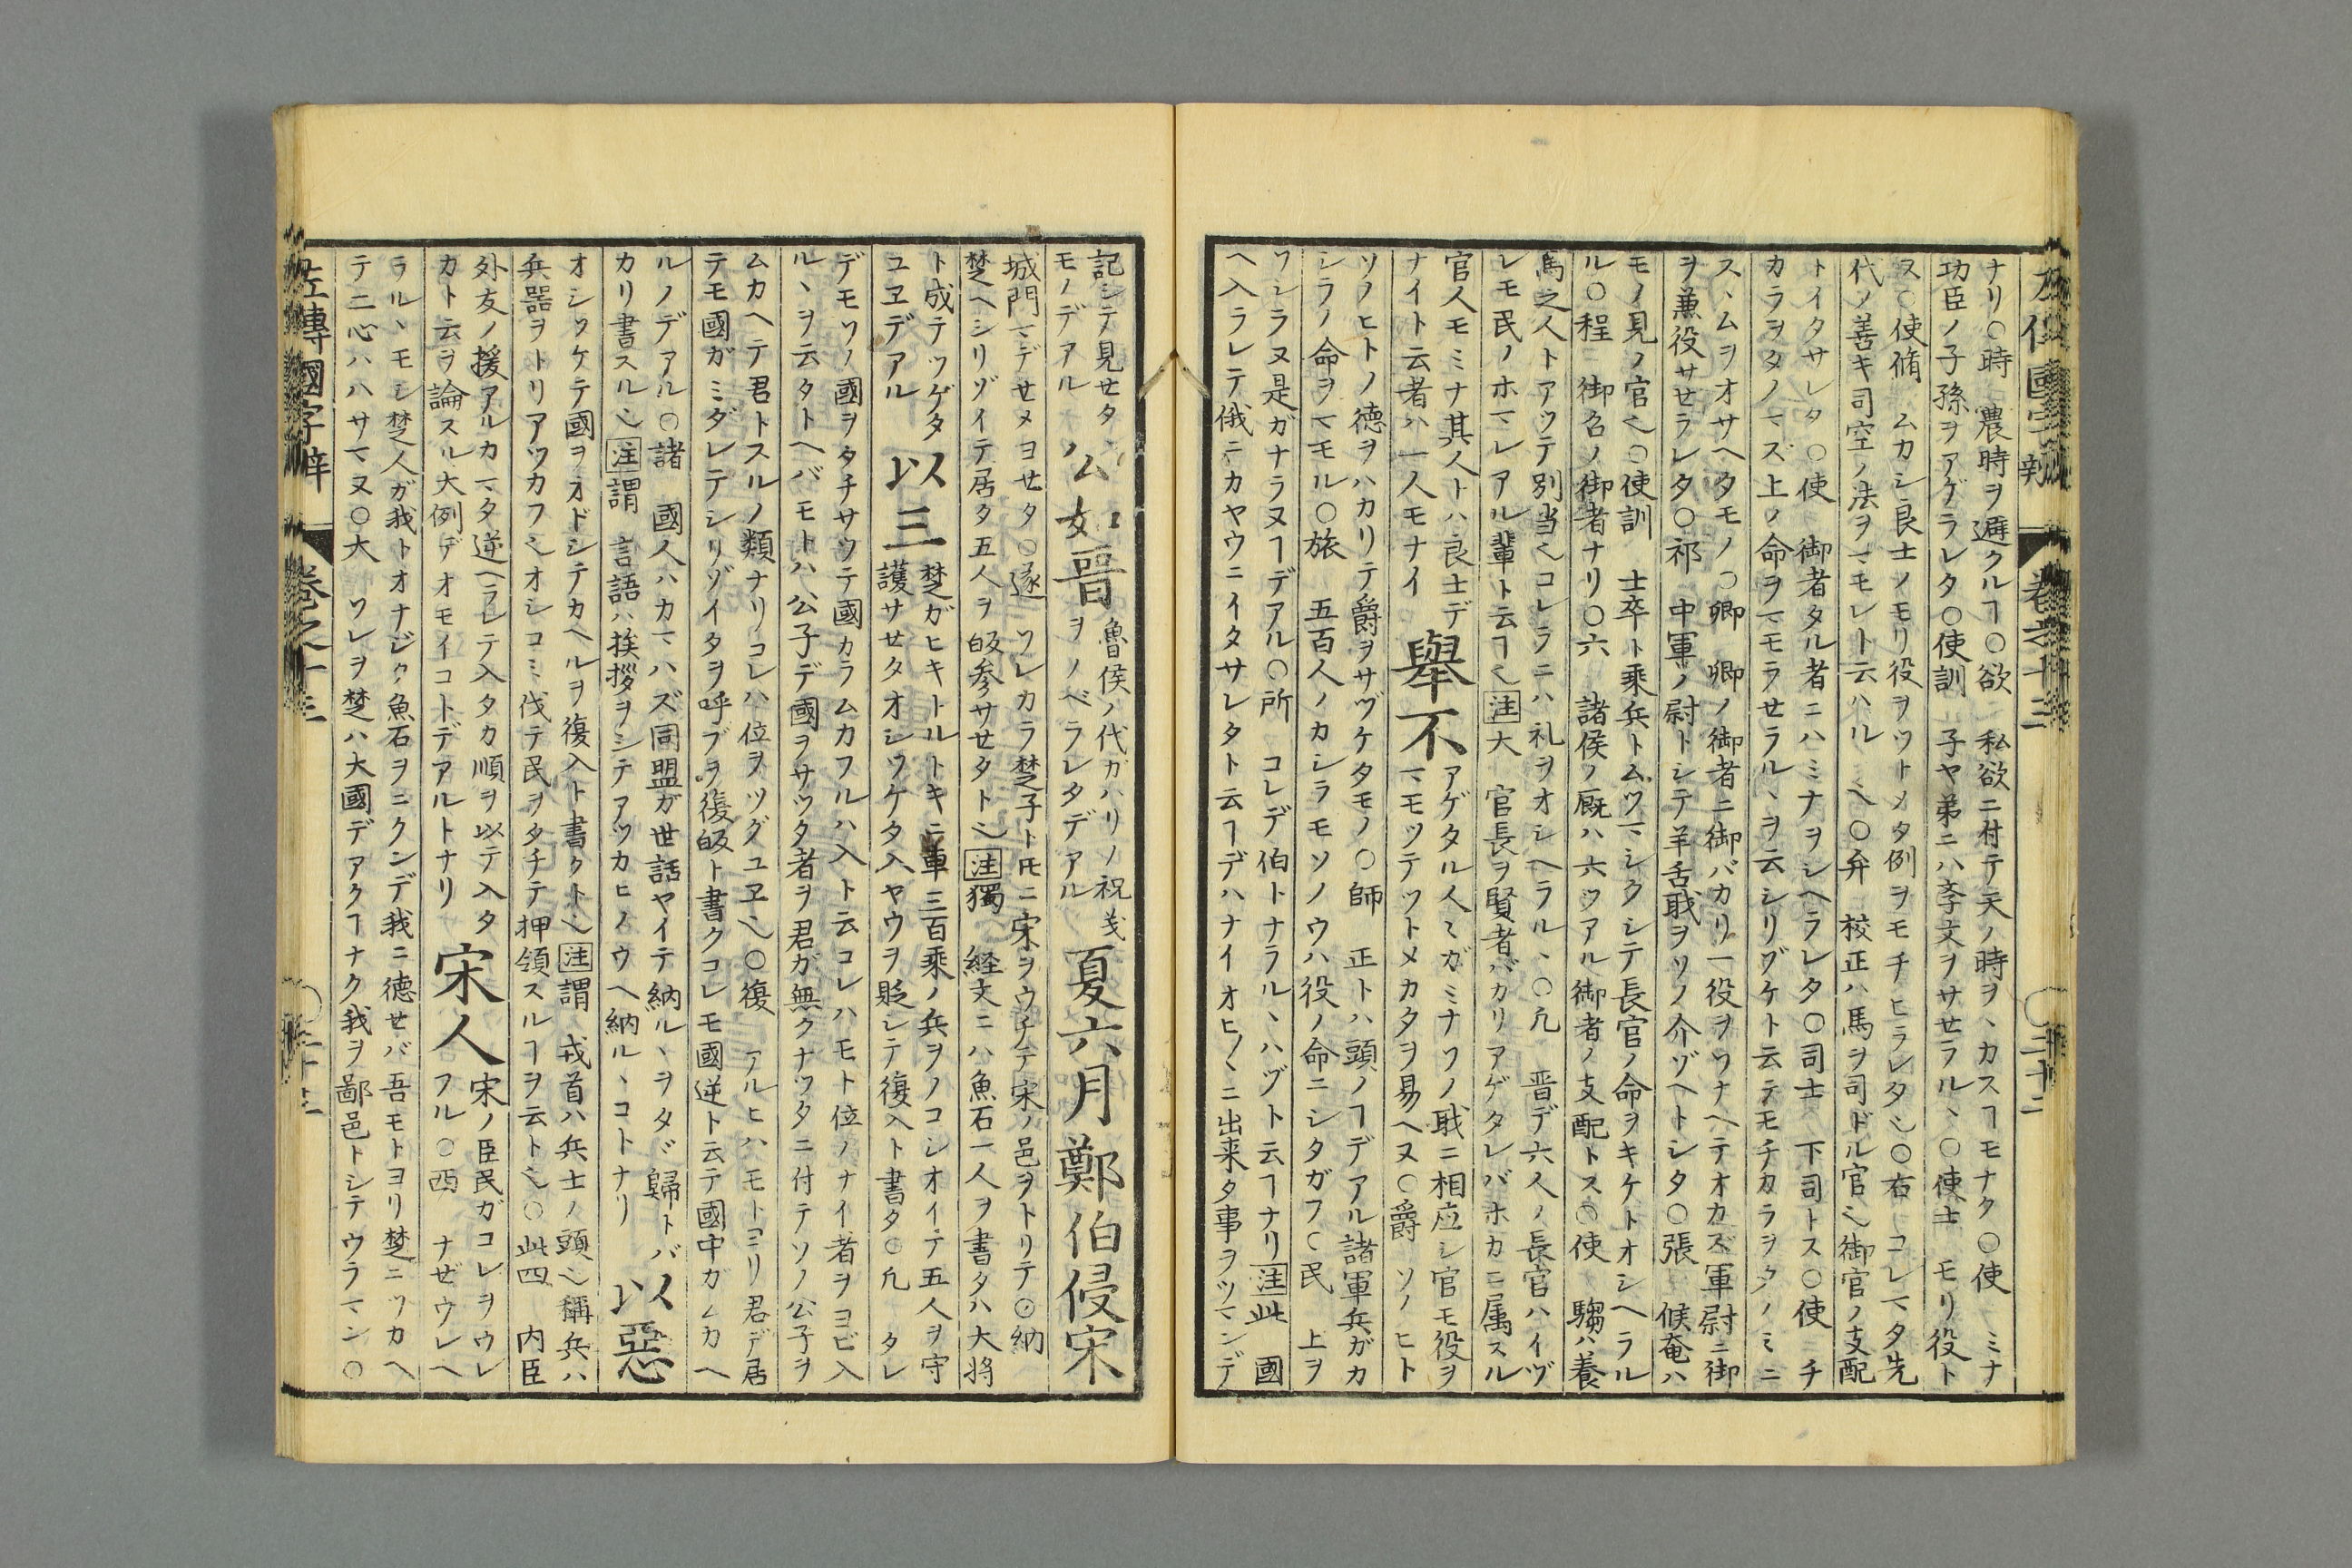 左傳國字辯 卷之十三 ○三十二
ナリ○時 農時ヲ避クルヿ○欲 私欲ニ付テ天ノ時ヲヽカスヿモナク○使 ミナ
功臣ノ子孫ヲアゲラレタ○使訓 子ヤ弟ニハ孝文ヲサセラルヽ○使士 モリ役ト
ス○使脩 ムカシ良士ノモリ役ヲツトメタ例ヲモチヒラレタ也○右 コレマタ先
代ノ善キ司空ノ法ヲマモレト云ハル也○弁 校正ハ馬ヲ司ドル官也御官ノ支配
トイタサレタ○使 御者タル者ニハミナヲシヘラレタ○司士 下司トス○使 チ
カラヲタノマズ上ノ命ヲマモラセラルヽヲ云シリゾケト云テモチカラヲタノミニ
スヽムヲオサヘタモノ○卿 卿ノ御者ニ御バカリ一役ヲソナヘテオカズ軍尉ニ御
ヲ兼役サセラレタ○祁 中軍ノ尉トシテ羊舌職ヲソノ介ゾヘトシタ○張 候奄ハ
モノ見ノ官也○使訓 士卒ト乘兵トムツマシクシテ長官ノ命ヲキケトオシヘラル
ル○程 御名ノ御者ナリ○六 諸侯ノ厩ハ六ツアル御者ノ支配トス○使 騶ハ養
馬之人トアツテ別当也コレラニハ礼ヲオシヘラルヽ○凢 晋デ六人ノ長官ハイヅ
レモ民ノホマレアル輩ト云ヿ也注大 官長ヲ賢者バカリアゲタレバホカニ属スル
官人モミナ其人トハ良士デ 舉不 アゲタル人〻ガミナソノ職ニ相応シ官モ役ヲ
ナイト云者ハ一人モナイ マモツテツトメカタヲ易ヘヌ○爵 ソノヒト
ソノヒトノ德ヲハカリテ爵ヲサヅケタモノ○師 正トハ頭ノヿデアル諸軍兵ガカ
シラノ命ヲマモル○旅 五百人ノカシラモソノウハ役ノ命ニシタガフ○民 上ヲ
ソシラヌ是ガナラヌヿデアル○所 コレデ伯トナラルヽハヅト云ヿナリ注此 國
ヘ入ラレテ俄ニカヤウニイタサレタト云ヿデハナイオヒ〱ニ出来タ事ヲツマンデ
記シテ見セタ 公如晋 魯侯ノ代ガハリノ祝㦮 夏六月鄭伯侵宋
モノデアル ヲノベラレタデアル
城門マデセメヨセタ○遂 ソレカラ楚子ト㕝ニ宋ヲウチテ宋ノ邑ヲトリテ○納
楚ヘシリゾイテ居タ五人ヲ皈参サセタト也注獨 経文ニハ魚石一人ヲ書タハ大将
ト成テツゲタ 以三 楚ガヒキトルトキニ車三百乘ノ兵ヲノコシオイテ五人ヲ守
ユヱデアル 護サセタオシツケタ入ヤウヲ貶シテ復入ト書タ○凢 タレ
デモソノ國ヲタチサツテ國カラムカフルハ入ト云コレハモト位ノナイ者ヲヨビ入
ルヽヲ云タトヘバモトハ公子デ國ヲサツタ者ヲ君ガ無クナツタニ付テソノ公子ヲ
ムカヘテ君トスルノ類ナリコレハ位ヲツグユヱ也○復 アルヒハモトヨリ君デ居
テモ國ガミダレテシリゾイタヲ呼ブヲ復皈ト書クコレモ國逆ト云テ國中ガムカヘ
ルノデアル○諸 國人ハカマハズ同盟ガ世話ヤイテ納ルヽヲタヾ歸トバ 以惡
カリ書スル也注謂 言語ハ挨拶ヲシテアツカヒノウヘ納ルヽコトナリ
オシツケテ國ヲオドシテカヘルヲ復入ト書クト也注謂 戎首ハ兵士ノ頭也稱兵ハ
兵噐ヲトリアツカフ也オシコミ伐テ民ヲタチテ押領スルヿヲ云ト也○此四 内臣
外友ノ援アルカマタ逆ヘラレテ入タカ順ヲ以テ入タ 宋人 宋ノ臣民ガコレヲウレ
カト云ヲ論スル大例デオモイコトデアルトナリ フル○西 ナゼウレヘ
ラルヽモシ楚人ガ我トオナジク魚石ヲニクンデ我ニ德セバ吾モトヨリ楚ニツカヘ
テ二心ハハサマヌ○大 ソレヲ楚ハ大國デアクヿナク我ヲ鄙邑トシテウラマン○
左傳國字辯 卷之十三